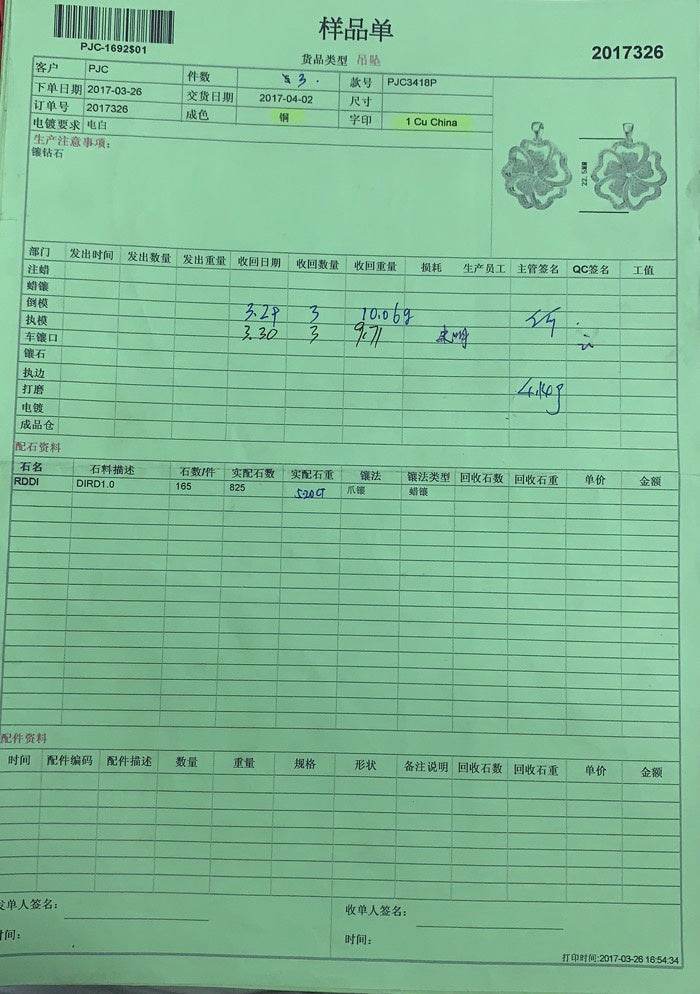 样品单
PJC-1692$01
货品类型 吊坠
2017326
客户 PJC 件数 3. 款号 PJC3418P
下单日期 2017-03-26 交货日期 2017-04-02 尺寸
订单号 2017326 成色 铜 字印 1 Cu China
电镀要求 电白
生产注意事项:
镶钻石
22.5MM
部门 发出时间 发出数量 发出重量 收回日期 收回数量 收回重量 损耗 生产员工 主管签名 QC签名 工值
注蜡
蜡镶
倒模 3.29 3 10.06g
执模 3.30 3 9.71
车镶口
镶石
执边
打磨 4.14g
电镀
成品仓
配石资料
石名 石料描述 石数/件 实配石数 实配石重 镶法 镶法类型 回收石数 回收石重 单价 金额
RDDI DIRD1.0 165 825 爪镶 蜡镶
配件资料
时间 配件编码 配件描述 数量 重量 规格 形状 备注说明 回收石数 回收石重 单价 金额
发单人签名: 收单人签名:
时间: 时间:
打印时间:2017-03-26 16:54:34